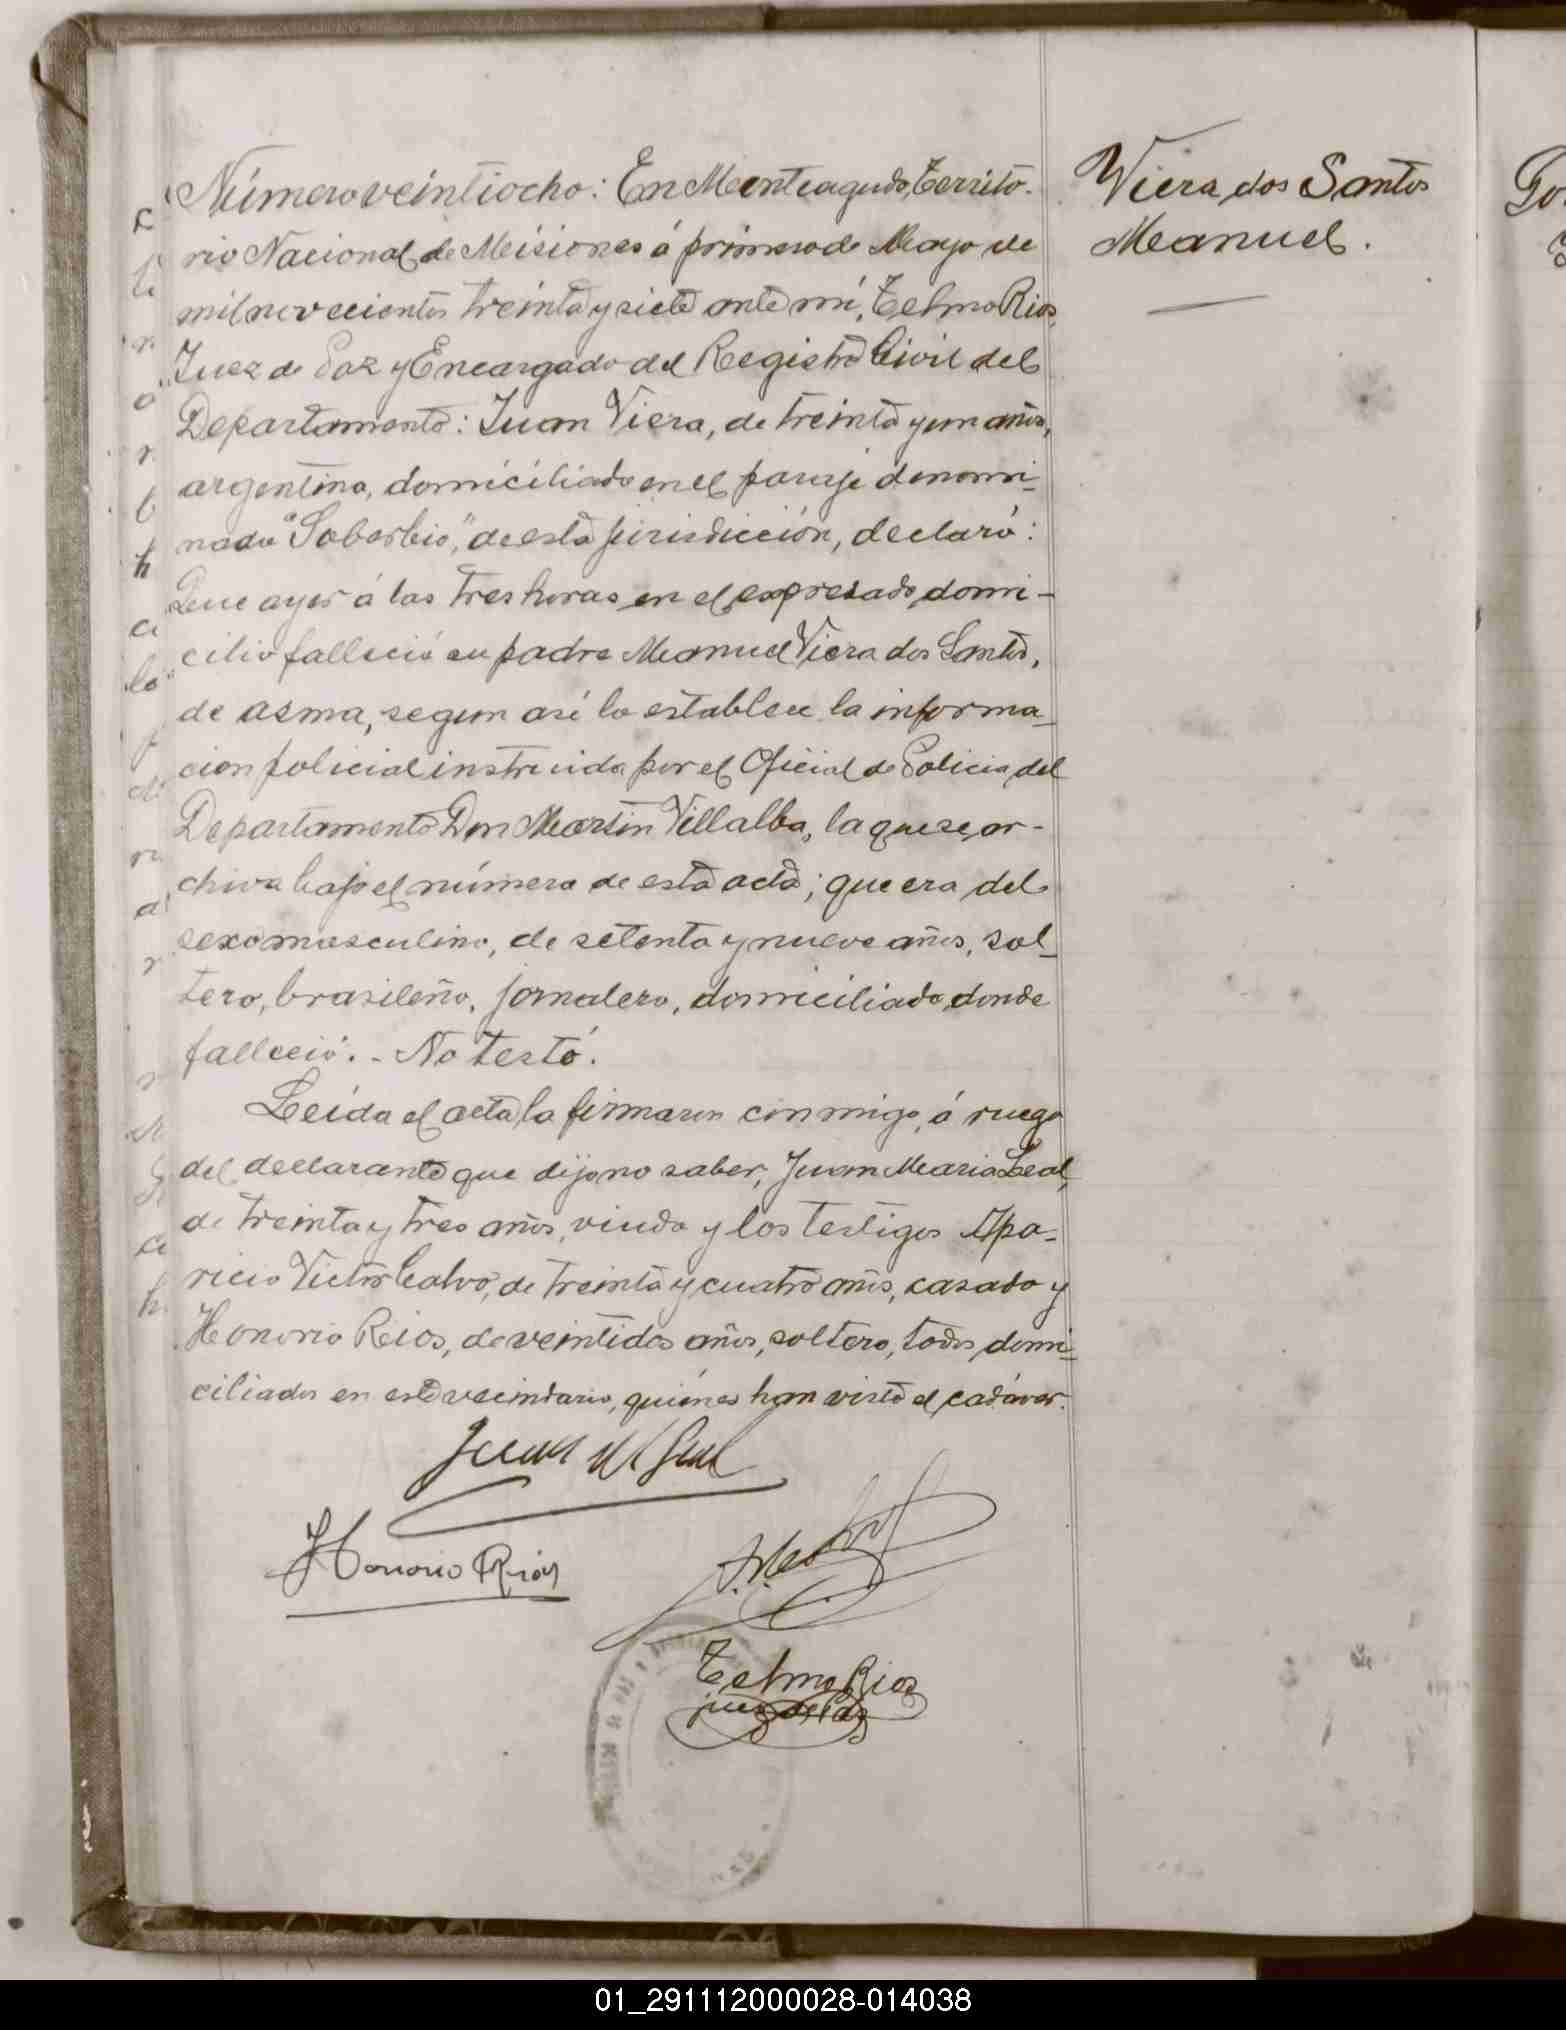 Número veintiocho: En Monteagudo, Territo-
rio Nacional de Misiones á primero de Mayo de
mil novecientos treinta y siete ante mí, Telmo Rios,
Juez de Paz y Encargado del Registro Civil del
Departamento: Juan Viera, de treinta y un años,
argentino, domiciliado en el paraje denomi-
nado "Soberbio", de esta jurisdicción, declaró:
Que ayer á las tres horas en el expresado domi-
cilio falleció su padre Manuel Viera dos Santos,
de asma, segun asi lo establece la informa-
cion policial instruida por el Oficial de Policia del
Departamento Don Martin Villalba, la que se ar-
chiva bajo el número de esta acta; que era del
sexo masculino, de setenta y nueve años, sol-
tero, brasileño, jornalero, domiciliado donde
falleció. - No testó.
Leída el acta la firmaron conmigo, á ruego
del declarante que dijo no saber, Juan Maria Leal,
de treinta y tres años, viudo y los testigos Apa-
ricio Victor Calvo, de treinta y cuatro años, casado y
Honorio Rios, de veintidos años, soltero, todos domi-
ciliados en este vecindario, quiénes han visto el cadáver.
Juan M Leal
Honorio Rios
Telmo Rios
juez de Paz
Viera dos Santos
Manuel.
01_291112000028-014038